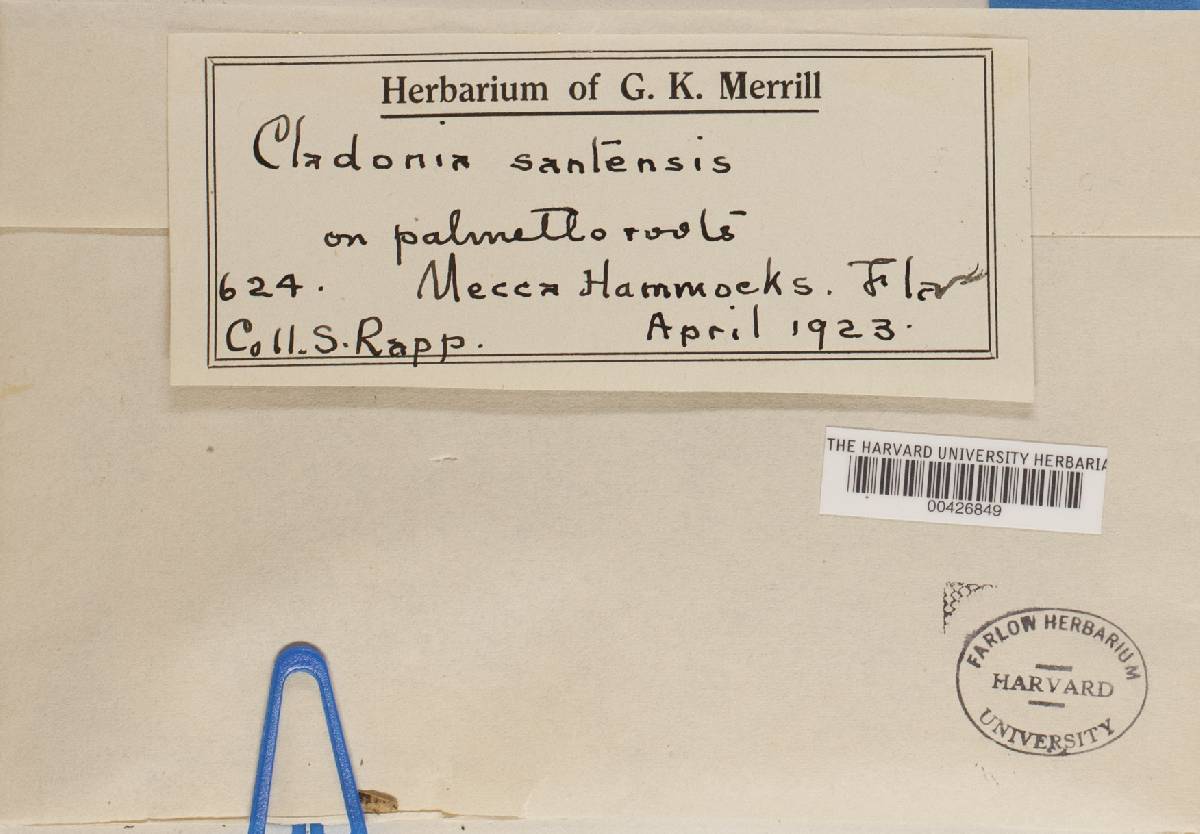 Herbarium of G. K. Merrill
Cladonia santensis
on palmetto roots
624. Mecca Hammocks. Fla
Coll. S. Rapp. April 1923.
THE HARVARD UNIVERSITY HERBARIA
00426849
FARLOW HERBARIUM
HARVARD
UNIVERSITY